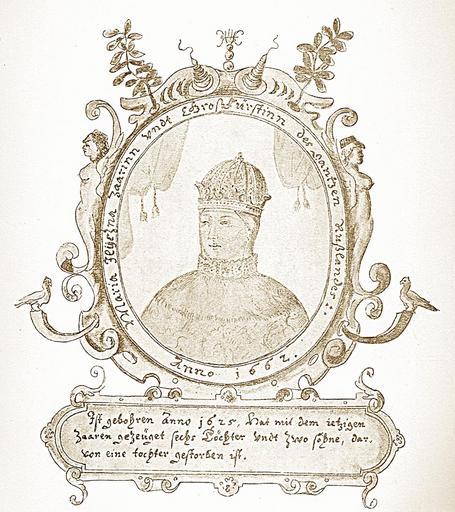 Maria Iliyczna Zaarinn undt Grosfürstinn des gantzen Rußlandes.
Anno 1662.
Ist gebohren Anno 1625, Hat mit dem ietzigen
Zaaren gezeüget sechs Töchter undt zwo söhne, dar.
von eine tochter gestorben ist.